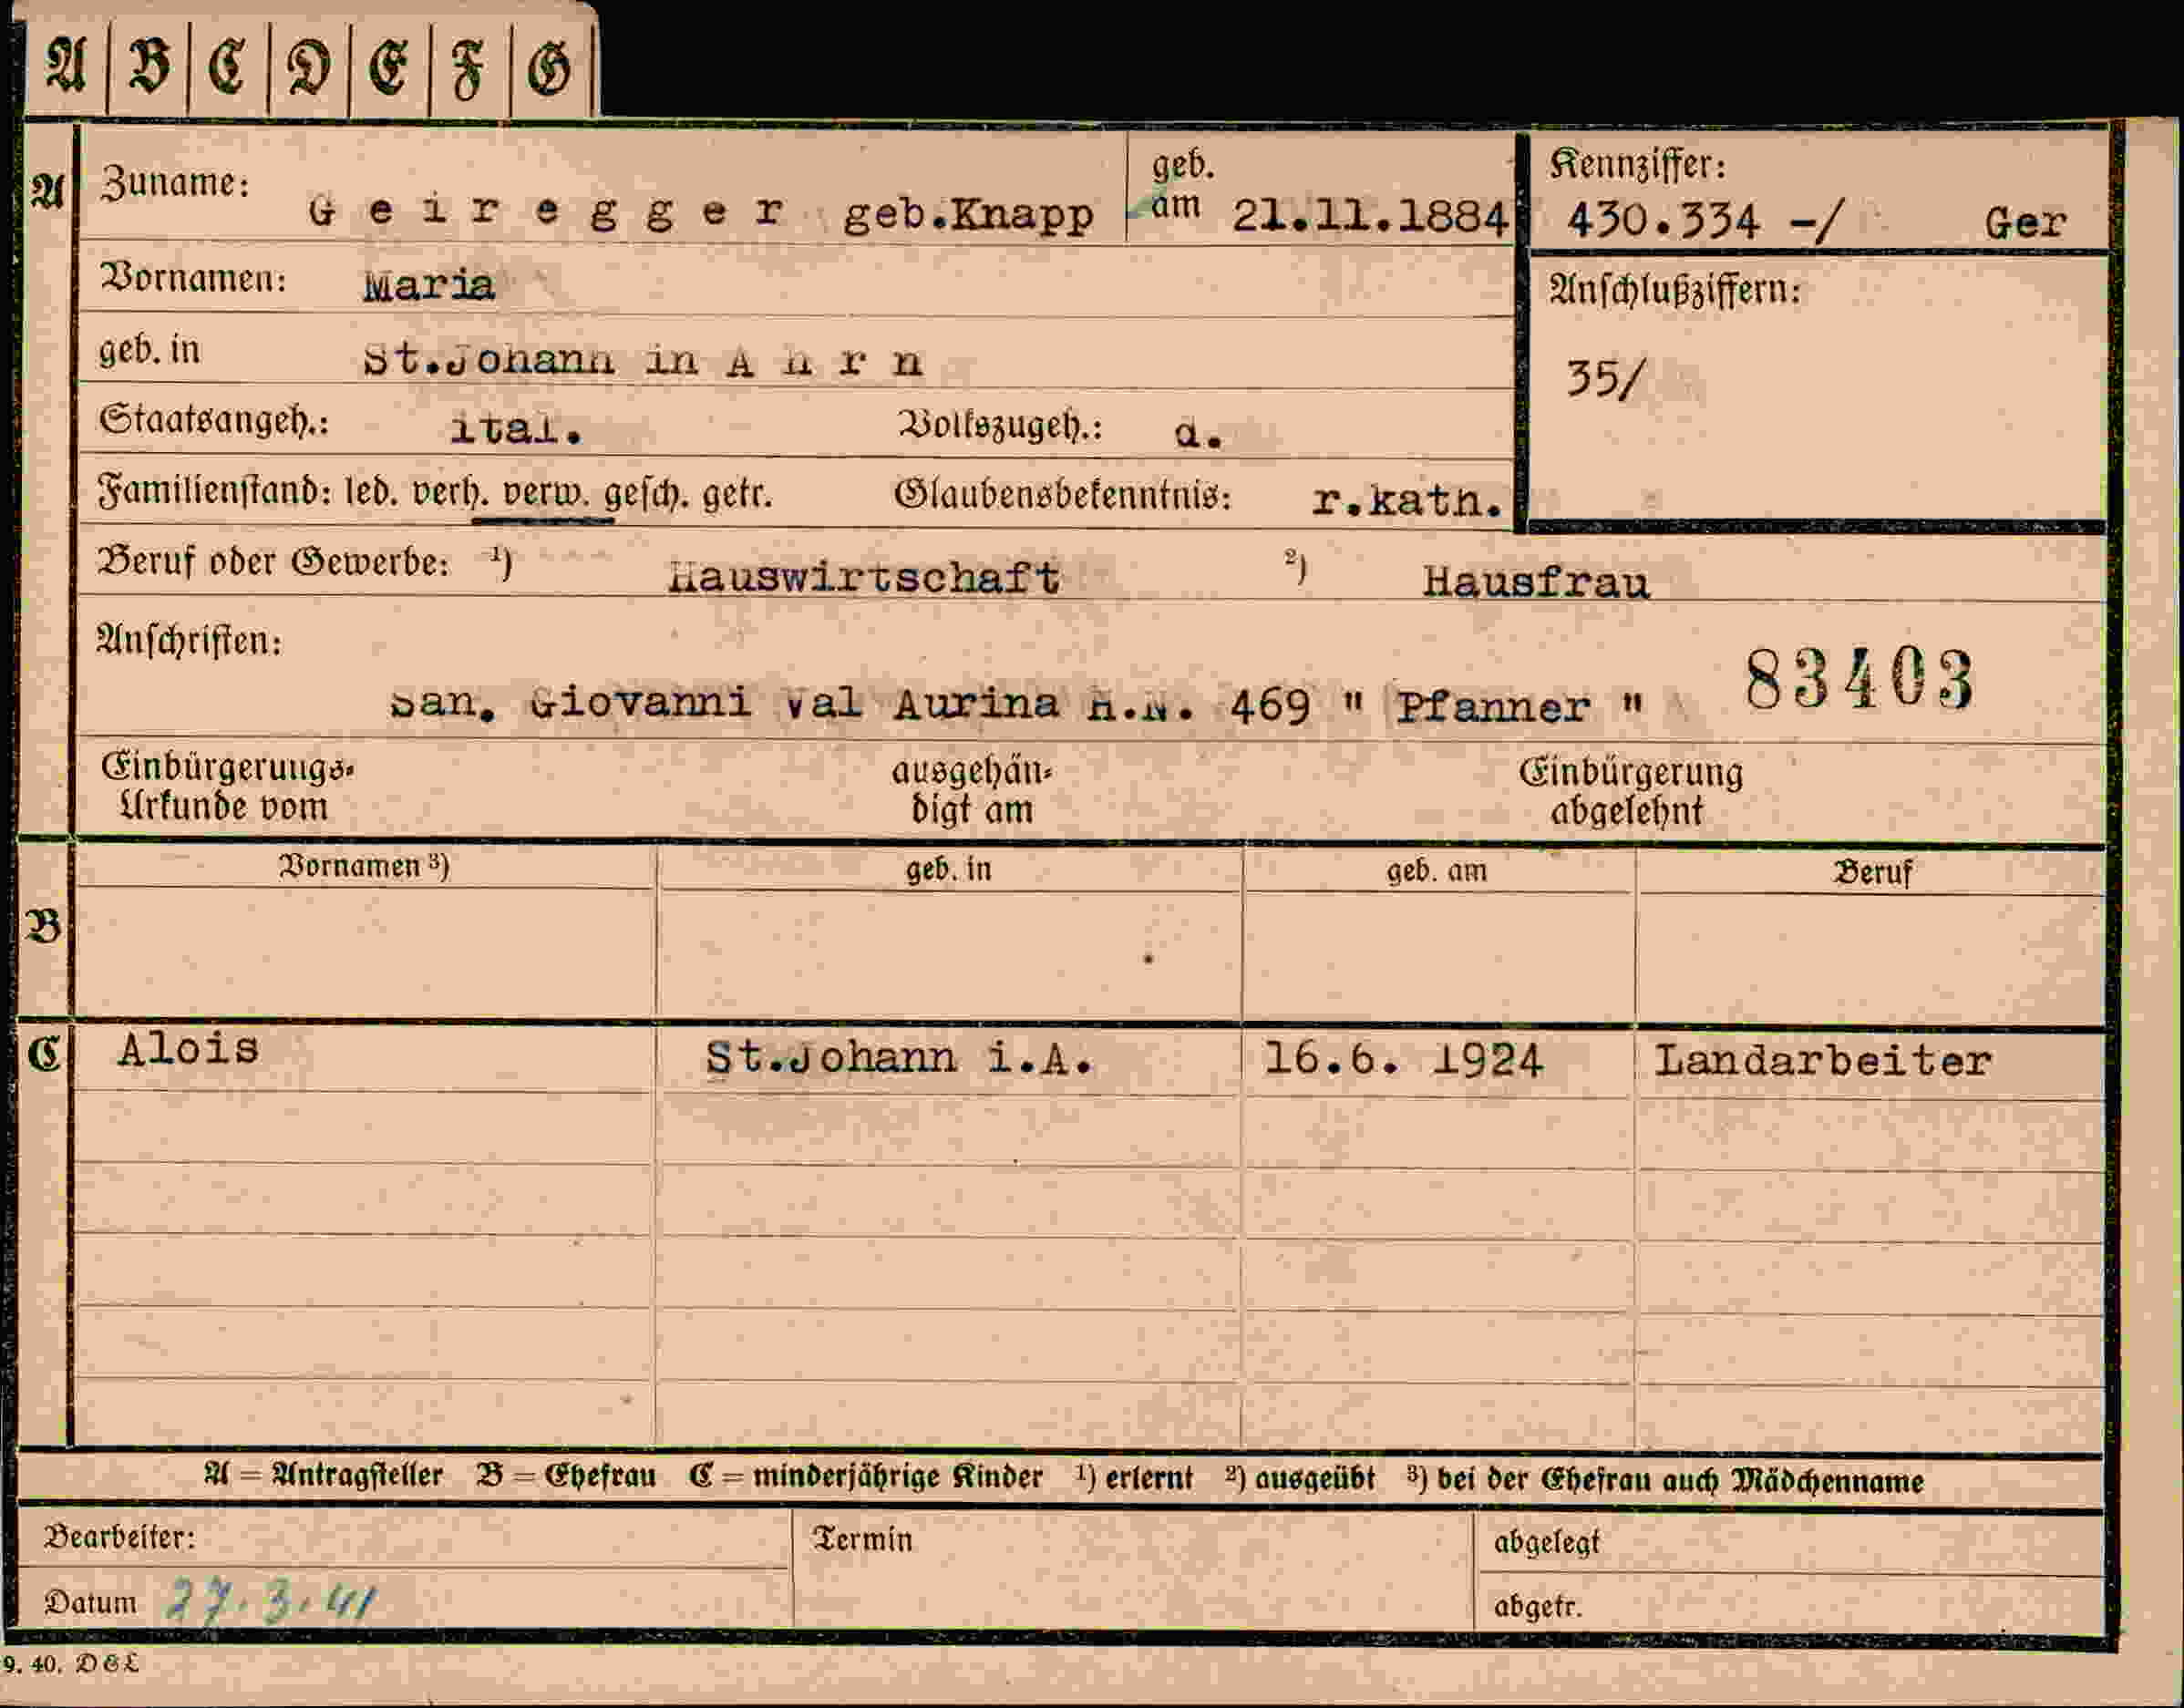 A B C D E F G
A Zuname: G e i r e g g e r geb.Knapp geb. am 21.11.1884 Kennziffer: 430.334 -/ Ger
Vornamen: Maria Anschlußziffern:
geb. in St.Johann in A h r n 35/
Staatsangeh.: ital. Volkszugeh.: d.
Familienstand: led. verh. verw. gesch. getr. Glaubensbekenntnis: r.kath.
Beruf oder Gewerbe: ¹) Hauswirtschaft ²) Hausfrau
Anschriften: 83403
San. Giovanni Val Aurina H.N. 469 " Pfanner "
Einbürgerungs- ausgehän- Einbürgerung
Urkunde vom digt am abgelehnt
B Vornamen ³) geb. in geb. am Beruf
C Alois St.Johann i.A. 16.6. 1924 Landarbeiter
A = Antragsteller B = Ehefrau C = minderjährige Kinder ¹) erlernt ²) ausgeübt ³) bei der Ehefrau auch Mädchenname
Bearbeiter: Termin abgelegt
Datum 27.3.41 abgetr.
9. 40. DEL